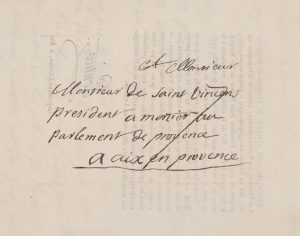 A Monsieur
Monsieur de Saint Vincens
president a mortier au
parlement de provence
a aix en provence